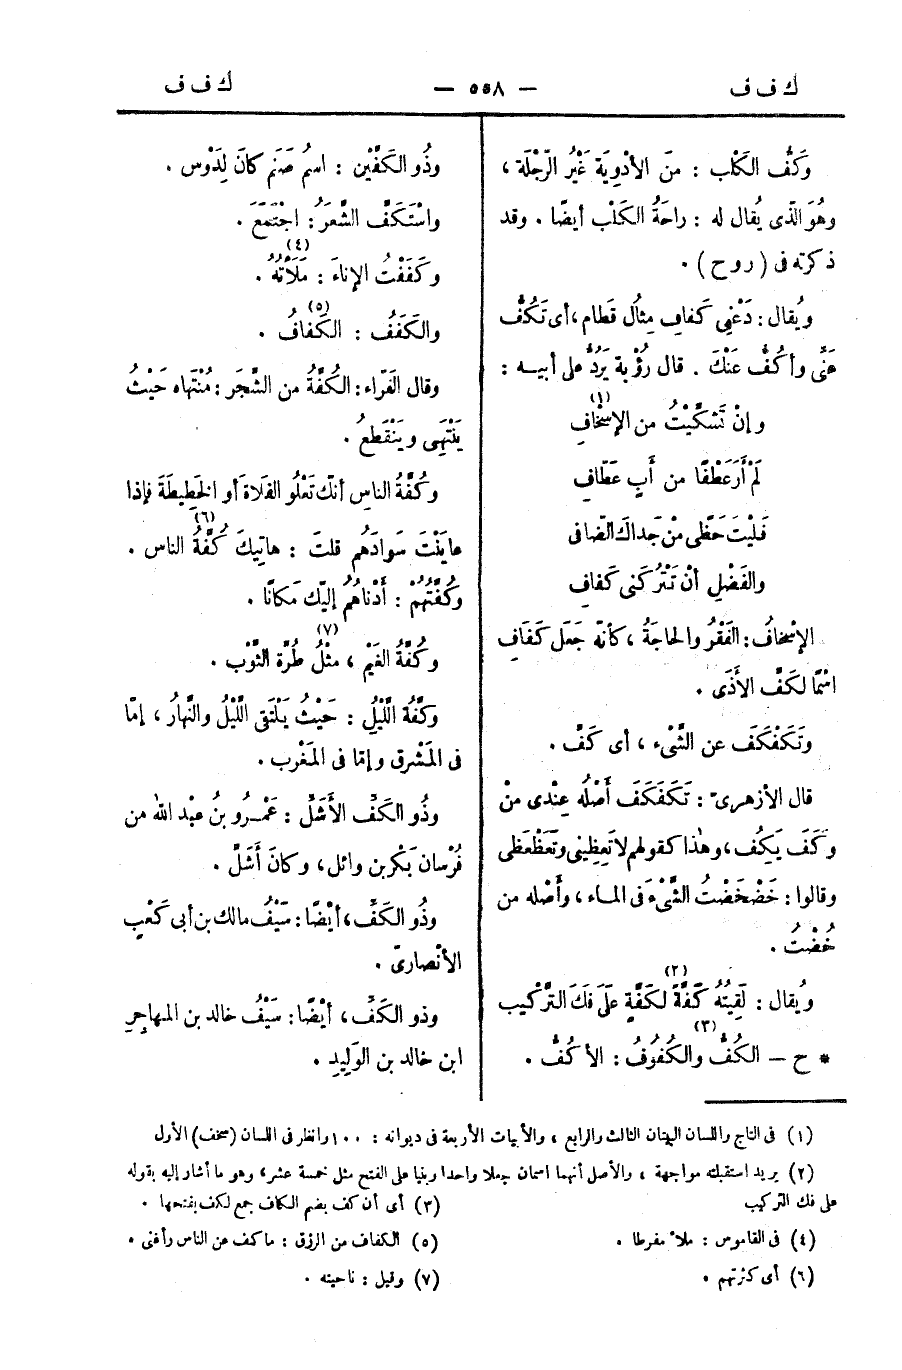 ك ف ف — ٥٥٨ — ك ف ف
وَكَفُّ الكَلْب : مِنَ الأدْوِيَة غَيْرُ الرِّجْلَة ،
وهُوَ الّذى يُقال له : راحَةُ الكَلْب أيضًا . وقد
ذكرته فى ( روح ) .
ويُقال : دَعْنِى كَفافِ مِثالُ قَطامِ ، أى تَكُفُّ
عَنِّى وأكُفُّ عَنْكَ . قال رُؤْبة يَرُدُّ على أبيـه :
وإنْ تَشَكَّيْتُ من الإسْخافِ (١)
لَمْ أرَ عَطْفًا من أبٍ عَطّافِ
فَلَيْتَ حَظِّى مِنْ جَداكَ الضّافى
والفَضْلِ أنْ تَتْرُكَنى كَفافِ
الإسْخافُ : الفَقْرُ والحاجَةُ ، كأنّه جَعَل كَفَافِ
اسْمًا لكَفِّ الأذَى .
وتَكَفْكَفَ عن الشَّىْء ، أى كَفَّ .
قال الأزهرىّ : تَكَفْكَفَ أصْلُه عِنْدى مِنْ
وَكَفَ يَكِفُ ، وهٰذا كقولهم لا تَعِظِينى وتَعَظْعَظى
وقالوا : خَضْخَضْتُ الشَّىْءَ فى المـاء ، وأصْله من
خُضْتُ .
ويُقال : لَقِيتُهُ كَفَّةً لكَفَّةٍ (٢) عَلَى فَكّ التَّرْكيب
* ح — الكُفُّ والكُفُوفُ (٣) : الأكُفُّ .
وذُو الكَفَّيْن : اسمُ صَنَمٍ كانَ لِدَوْس .
واسْتَكَفَّ الشَّعَرُ : اجْتَمَعَ .
وكَفَفْتُ الإناءَ : مَلَأتُهُ (٤) .
والكَفَفُ : الكَفافُ (٥) .
وقال الفَرّاء : الكُفَّةُ من الشَّجَر : مُنْتَهاه حَيْثُ
يَنْتَهِى ويَنْقَطعُ .
وكُفَّةُ الناسِ أنّكَ تَعْلُو الفَلاةَ أو الخَطِيطَةَ فإذا
عايَنْتَ سَوادَهُم قلتَ : هاتِيكَ كُفَّةُ (٦) الناس .
وكُفَّتُهُمْ : أدْناهُم إليْكَ مَكانًا .
وكُفَّةُ الغَيْم (٧) ، مثْلُ طُرَّة الثَّوْب .
وكُفَّةُ اللَّيْلِ : حَيْثُ يَلْتَقى اللَّيْلُ والنَّهارُ ، إمّا
فى المَشْرق وإمّا فى المَغْرب .
وذُو الكَفّ الأشَلّ : عَمْـرُو بنُ عبْد الله من
فُرْسان بَكْر بن وائل ، وكانَ أشَلَّ .
وذُو الكَفّ ، أيْضًا : سَيْفُ مالك بن أبى كَعْب
الأنْصارىّ .
وذو الكَفّ ، أيْضًا : سَيْفُ خالد بن المهاجِرِ
ابن خالد بن الوَلِيدِ .
(١) فى التاج واللسان البيتان الثالث والرابع ، والأبيات الأربعة فى ديوانه : ١٠٠ وانظر فى اللسان (سخف) الأول
(٢) يريد استقبلته مواجهة ، والأصل أنهما اسمان جعلا واحدا وبنيا على الفتح مثل خمسة عشر ، وهو ما أشار إليه بقوله
على فك التركيب
(٣) أى أن كف بضم الكاف جمع لكف بفتحها .
(٤) فى القاموس : ملأ مفرطا .
(٥) الكفاف من الرزق : ما كف عن الناس وأغنى .
(٦) أى كثرتهم .
(٧) وقيل : ناحيته .